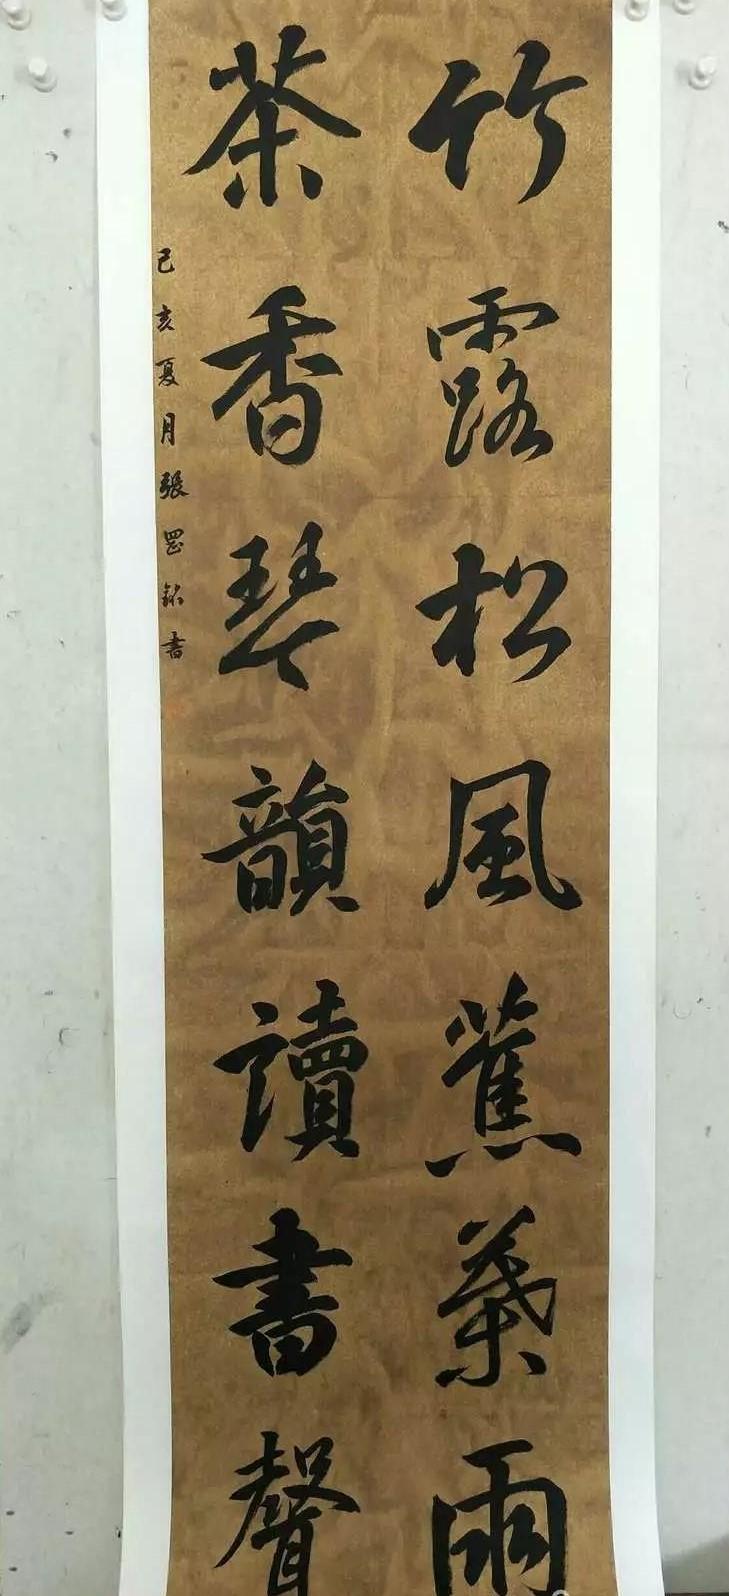 竹露松風蕉葉雨
茶香琴韻讀書聲
己亥夏月張罡銘書